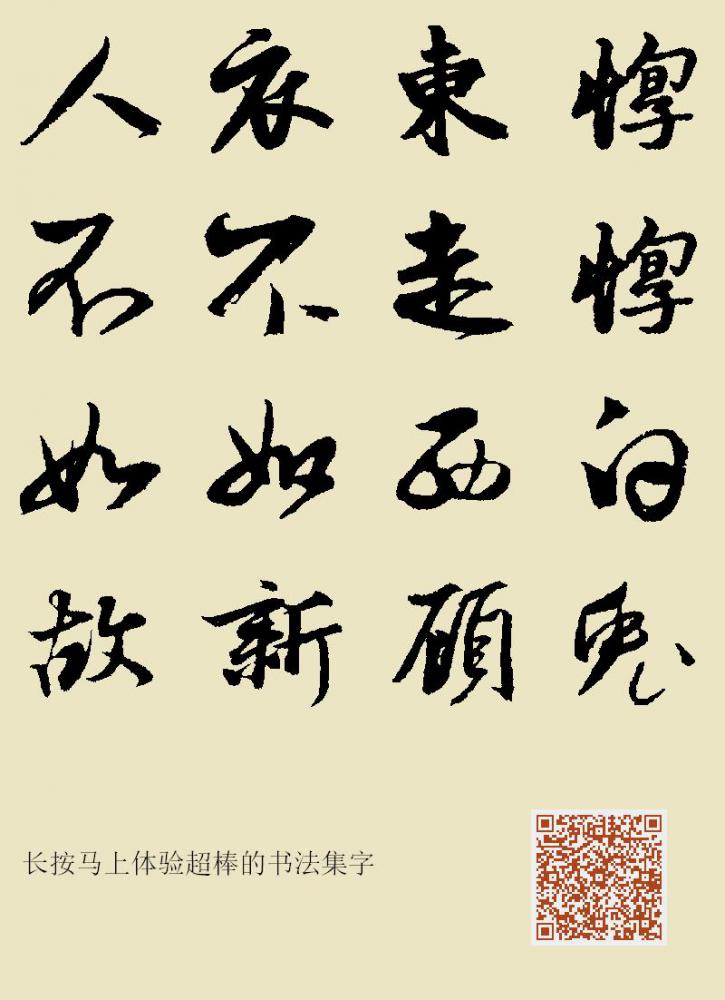 惸惸白兔
東走西顧
衣不如新
人不如故
长按马上体验超棒的书法集字